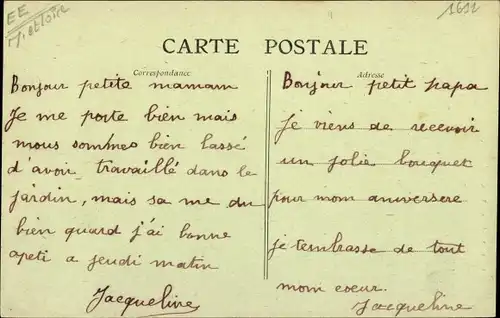 EE
M. et Loire
1611
CARTE POSTALE
Correspondance
Bonjour petite mamam
Je me porte bien mais
nous sommes bien lassé
d'avoir travaillé dans le
jardin, mais sa me du
bien quard j'ai bonne
apeti a jeudi matin
Jacqueline
Adresse
Bonjour petit papa
je viens de recevoir
un jolie bouquet
pour mom aniversere
je tembrasse de tout
mom coeur.
Jacqueline